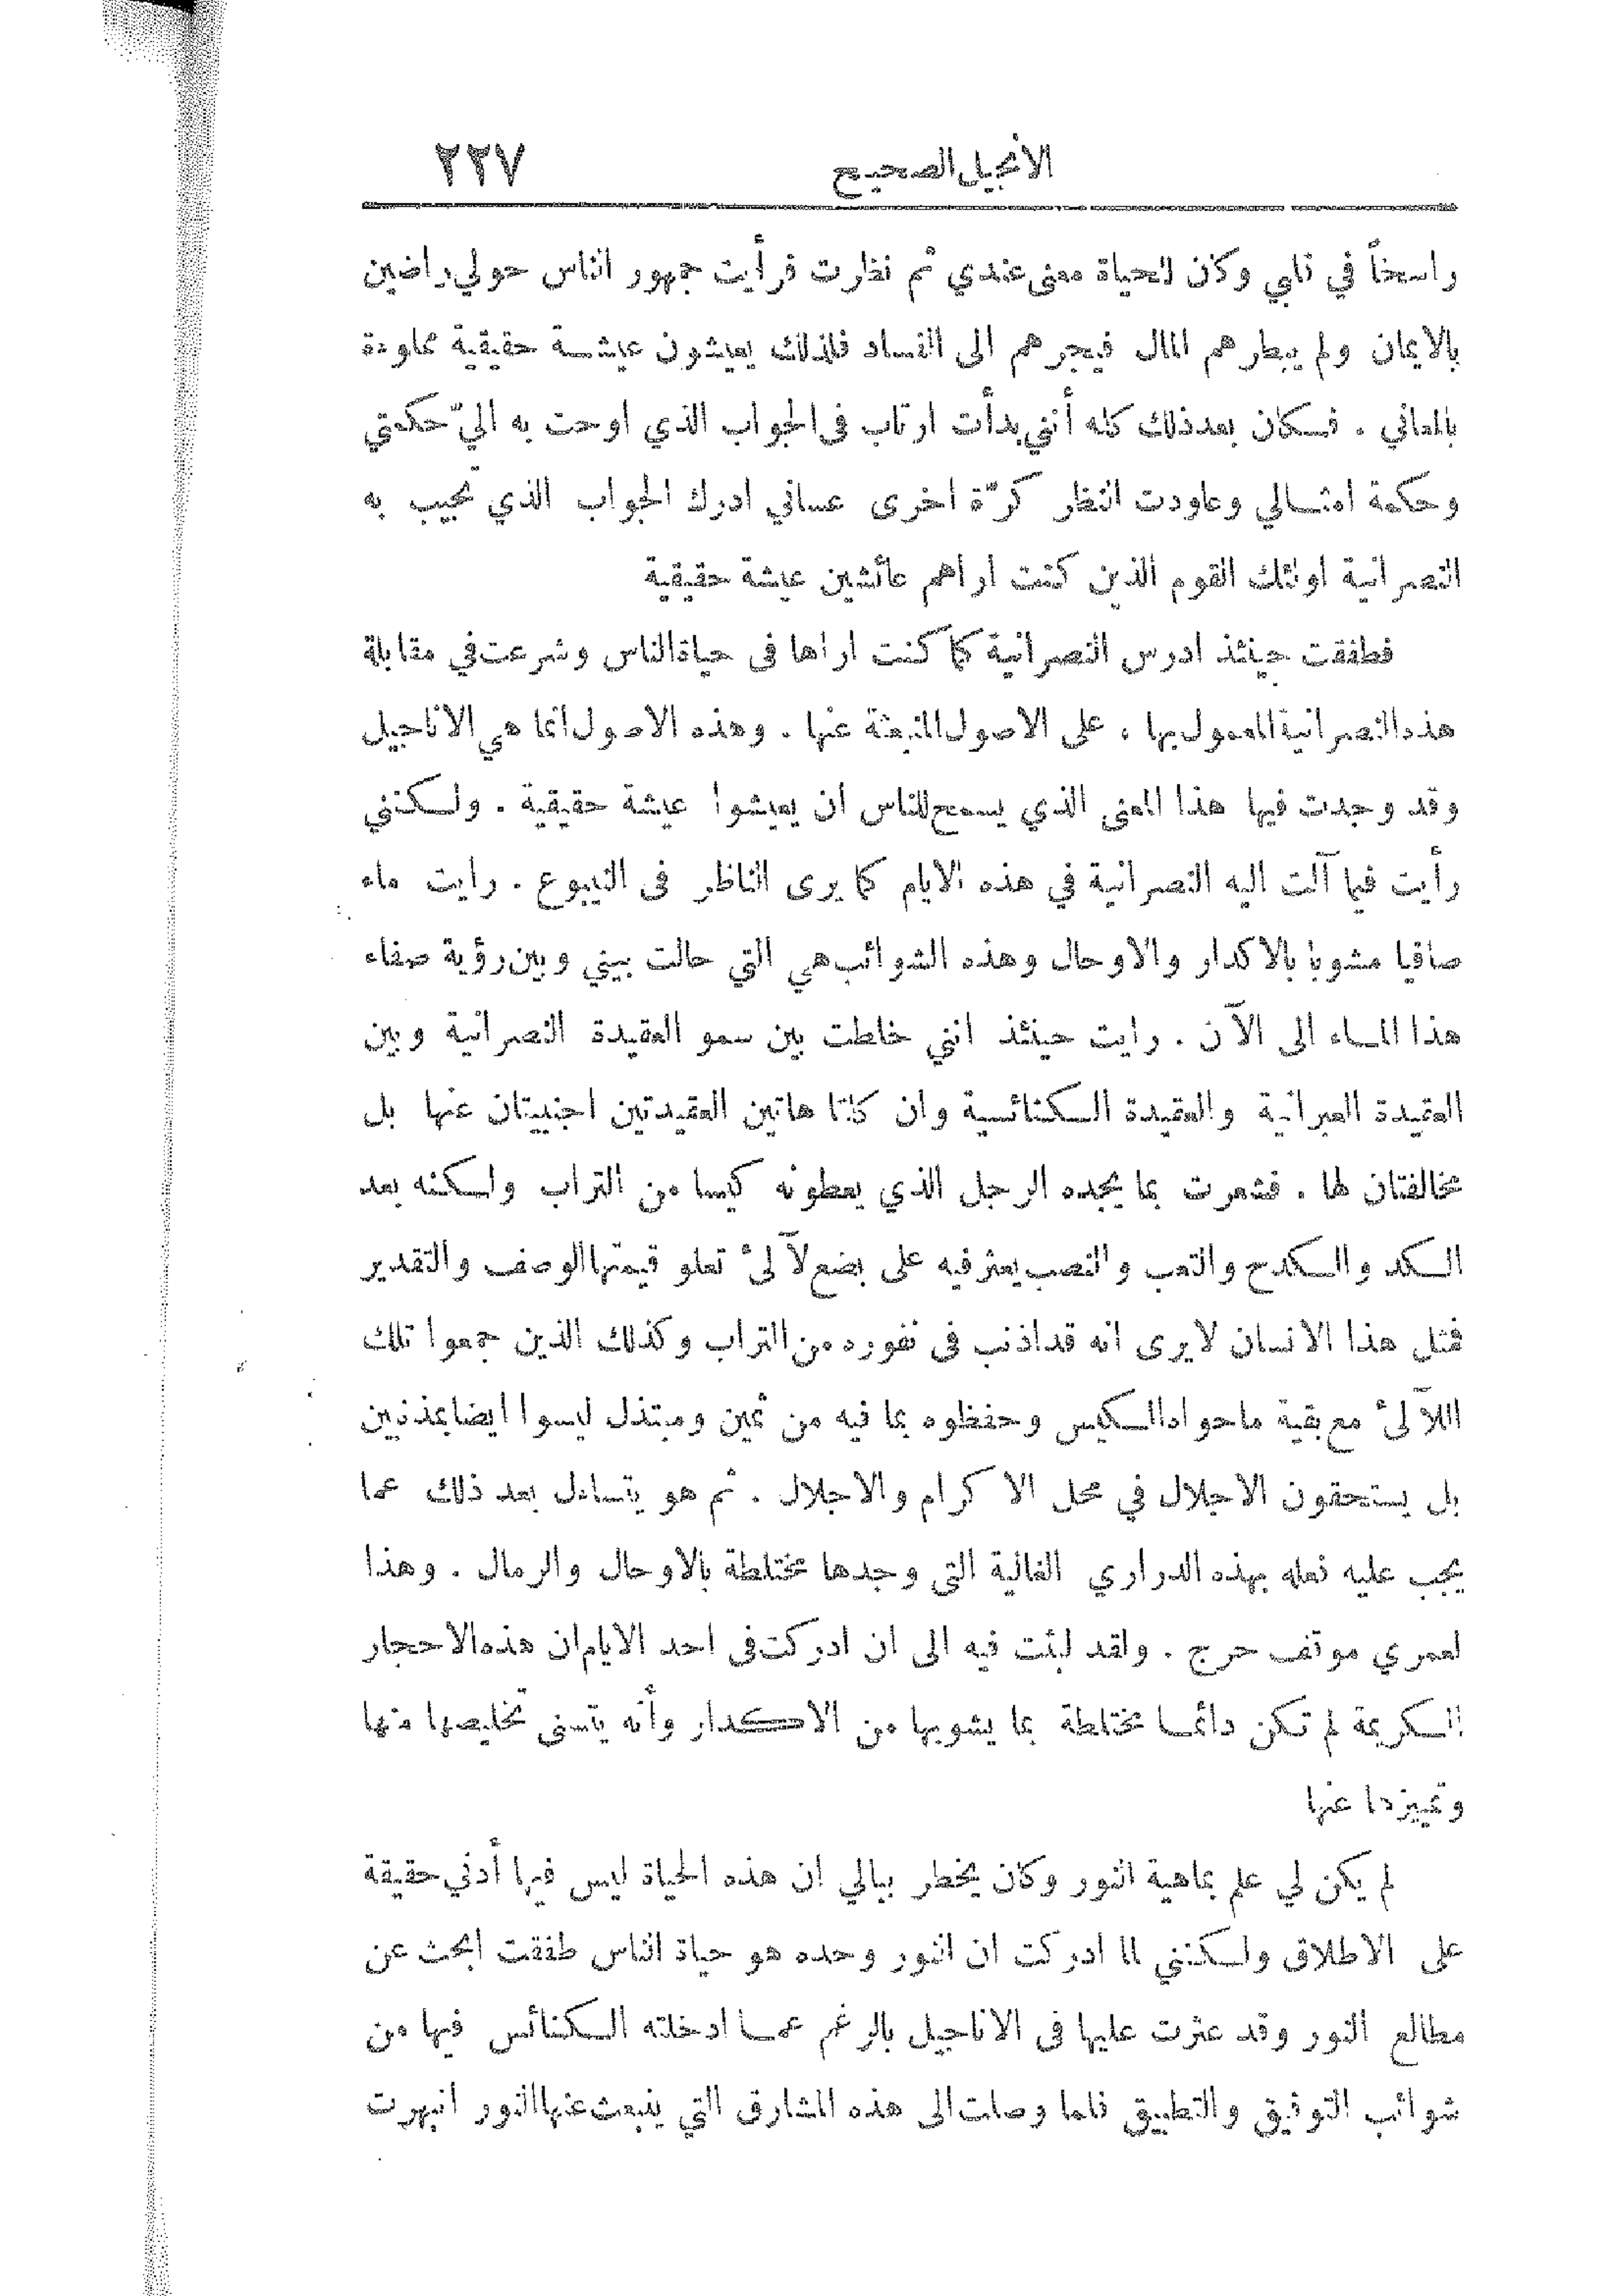 الانجيل الصحيح ٢٢٧
راسخاً في قلبي وكان للحياة معنى عندي ثم نظرت فرأيت جمهور الناس حولي راضين
بالايمان ولم يبطرهم المال فيجرهم الى الفساد فلذلك يعيشون عيشة حقيقية مملوءة
بالمعاني . فكان بعد ذلك كله أنني بدأت ارتاب فى الجواب الذي اوحت به اليّ حكمتي
وحكمة امثالي وعاودت النظر كرّة اخرى عساني ادرك الجواب الذي تجيب به
النصرانية اولئك القوم الذين كنت اراهم عائشين عيشة حقيقية
فطفقت حينئذ ادرس النصرانية كما كنت اراها فى حياة الناس وشرعت في مقابلة
هذه النصرانية المعمول بها ، على الاصول المنبعثة عنها . وهذه الاصول انما هي الاناجيل
وقد وجدت فيها هذا المعنى الذي يسمح للناس ان يعيشوا عيشة حقيقية . ولكنني
رأيت فيما آلت اليه النصرانية في هذه الايام كما يرى الناظر فى الينبوع . رايت ماء
صافيا مشوبا بالاكدار والاوحال وهذه الشوائب هي التي حالت بيني وبين رؤية صفاء
هذا الماء الى الآن . رايت حينئذ انني خلطت بين سمو العقيدة النصرانية وبين
العقيدة العبرانية والعقيدة الكنائسية وان كانتا هاتين العقيدتين اجنبيتان عنها بل
مخالفتان لها . فشعرت بما يجده الرجل الذي يعطونه كيسا من التراب ولكنه بعد
الكد والكدح والتعب والنصب يعثر فيه على بضع لآلىء تعلو قيمتها الوصف والتقدير
فمثل هذا الانسان لا يرى انه قد اذنب فى نفوره من التراب وكذلك الذين جمعوا تلك
اللآلىء مع بقية ما حواه الكيس وحفظوه بما فيه من ثمين ومبتذل ليسوا ايضا بمذنبين
بل يستحقون الاجلال في محل الاكرام والاجلال . ثم هو يتساءل بعد ذلك عما
يجب عليه فعله بهذه الدراري الغالية التى وجدها مختلطة بالاوحال والرمال . وهذا
لعمري موقف حرج . ولقد لبثت فيه الى ان ادركت فى احد الايام ان هذه الاحجار
الكريمة لم تكن دائما مختلطة بما يشوبها من الاكدار وأنه يتسنى تخليصها منها
وتمييزها عنها
لم يكن لي علم بماهية النور وكان يخطر ببالي ان هذه الحياة ليس فيها أدنى حقيقة
على الاطلاق ولكنني لما ادركت ان النور وحده هو حياة الناس طفقت ابحث عن
مطالع النور وقد عثرت عليها فى الاناجيل بالرغم عما ادخلته الكنائس فيها من
شوائب التوفيق والتطبيق فلما وصلت الى هذه المشارق التي ينبعث عنها النور انبهرت